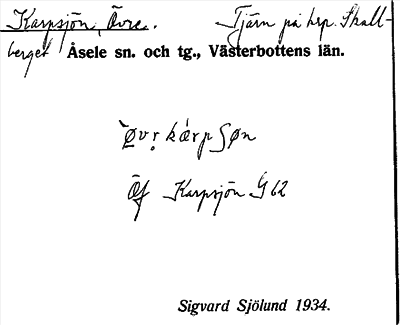 Karpsjön, Övre. Tjärn på hsp. Skall-
berget Åsele sn. och tg., Västerbottens län.
Jf Karpsjön G 62
Sigvard Sjölund 1934.